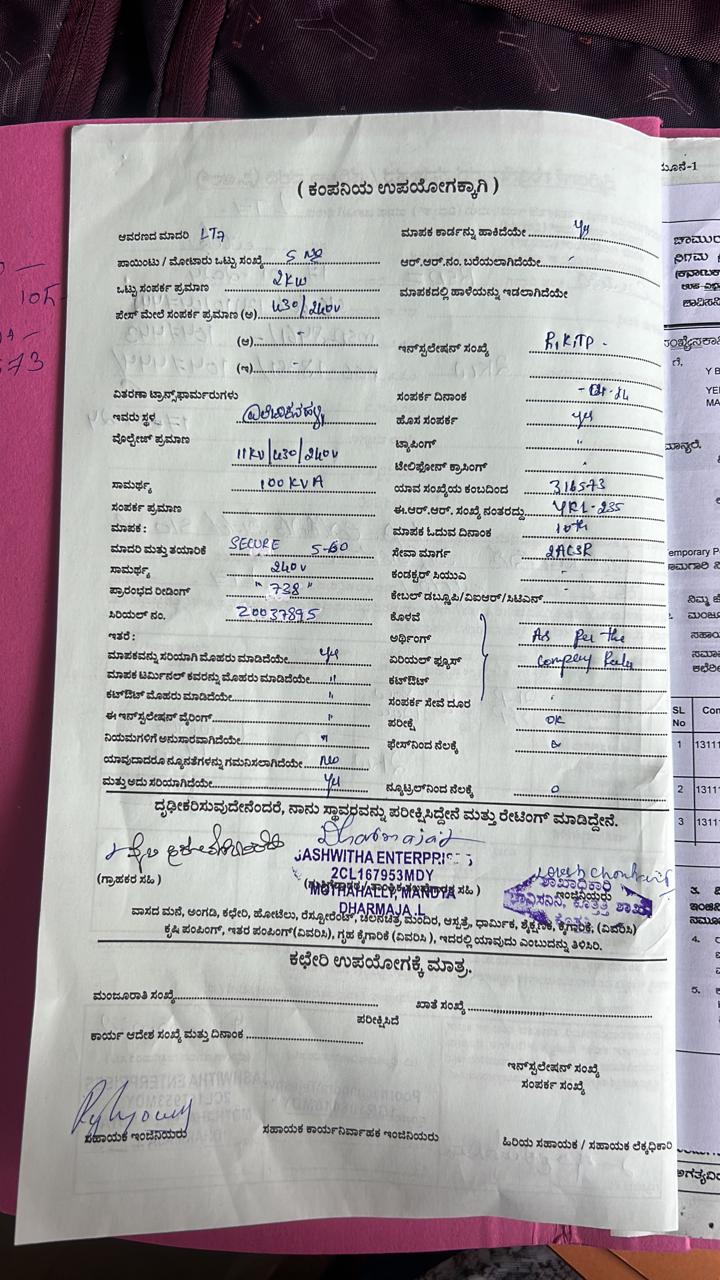 ( ಕಂಪನಿಯ ಉಪಯೋಗಕ್ಕಾಗಿ )
ಆವರಣದ ಮಾದರಿ LT7
ಪಾಯಿಂಟು / ಮೋಟಾರು ಒಟ್ಟು ಸಂಖ್ಯೆ 5 No
ಒಟ್ಟು ಸಂಪರ್ಕ ಪ್ರಮಾಣ 2KW
ಪೇಸ್ ಮೇಲೆ ಸಂಪರ್ಕ ಪ್ರಮಾಣ (ಅ) 430/240V
(ಆ) -
(ಇ) -
ವಿತರಣಾ ಟ್ರಾನ್ಸ್‌ಫಾರ್ಮರುಗಳು
ಇವರು ಸ್ಥಳ
ವೊಲ್ಟೇಜ್ ಪ್ರಮಾಣ 11KV/430/240V
ಸಾಮರ್ಥ್ಯ 100KVA
ಸಂಪರ್ಕ ಪ್ರಮಾಣ
ಮಾಪಕ :
ಮಾದರಿ ಮತ್ತು ತಯಾರಿಕೆ SECURE 5-60
ಸಾಮರ್ಥ್ಯ 240V
ಪ್ರಾರಂಭದ ರೀಡಿಂಗ್ "738"
ಸಿರಿಯಲ್ ನಂ. 20037895
ಇತರೆ :
ಮಾಪಕವನ್ನು ಸರಿಯಾಗಿ ಮೊಹರು ಮಾಡಿದೆಯೇ yes
ಮಾಪಕ ಟರ್ಮಿನಲ್ ಕವರನ್ನು ಮೊಹರು ಮಾಡಿದೆಯೇ "
ಕಟ್‌ಔಟ್ ಮೊಹರು ಮಾಡಿದೆಯೇ "
ಈ ಇನ್‌ಸ್ಟಲೇಷನ್ ವೈರಿಂಗ್ "
ನಿಯಮಗಳಿಗೆ ಅನುಸಾರವಾಗಿದೆಯೇ "
ಯಾವುದಾದರೂ ನ್ಯೂನತೆಗಳನ್ನು ಗಮನಿಸಲಾಗಿದೆಯೇ No
ಮತ್ತು ಅದು ಸರಿಯಾಗಿದೆಯೇ yes
ಮಾಪಕ ಕಾರ್ಡನ್ನು ಹಾಕಿದೆಯೇ yes
ಆರ್.ಆರ್.ನಂ. ಬರೆಯಲಾಗಿದೆಯೇ
ಮಾಪಕದಲ್ಲಿ ಹಾಳೆಯನ್ನು ಇಡಲಾಗಿದೆಯೇ
ಇನ್‌ಸ್ಟಲೇಷನ್ ಸಂಖ್ಯೆ
ಸಂಪರ್ಕ ದಿನಾಂಕ
ಹೊಸ ಸಂಪರ್ಕ yes
ಟ್ಯಾಪಿಂಗ್ "
ಟೆಲಿಫೋನ್ ಕ್ರಾಸಿಂಗ್
ಯಾವ ಸಂಖ್ಯೆಯ ಕಂಬದಿಂದ 316573
ಈ.ಆರ್.ಆರ್. ಸಂಖ್ಯೆ ನಂತರದ್ದು YRL-235
ಮಾಪಕ ಓದುವ ದಿನಾಂಕ 10th
ಸೇವಾ ಮಾರ್ಗ 2ACSR
ಕಂಡಕ್ಟರ್ ಸಿಯುವಿ -
ಕೇಬಲ್ ಡಬ್ಲೂಪಿ/ವಿಐಆರ್/ಸಿಟಿಎನ್
ಕೊಳವೆ
ಅರ್ಥಿಂಗ್ As per the
ಏರಿಯಲ್ ಫ್ಯೂಸ್ Company Rules
ಕಟ್‌ಔಟ್
ಸಂಪರ್ಕ ಸೇವೆ ದೂರ
ಪರೀಕ್ಷೆ OK
ಫೇಸ್‌ನಿಂದ ನೆಲಕ್ಕೆ
ನ್ಯೂಟ್ರಲ್‌ನಿಂದ ನೆಲಕ್ಕೆ 0
ದೃಢೀಕರಿಸುವುದೇನೆಂದರೆ, ನಾನು ಸ್ಥಾವರವನ್ನು ಪರೀಕ್ಷಿಸಿದ್ದೇನೆ ಮತ್ತು ರೇಟಿಂಗ್ ಮಾಡಿದ್ದೇನೆ.
JASHWITHA ENTERPRISES
2CL167953MDY
MOTHAHALLY, MANDYA
DHARMAJA.L
(ಗ್ರಾಹಕರ ಸಹಿ )
ಶಾಖಾಧಿಕಾರಿ
ಇಂಜಿನಿಯರು
ವಾಸದ ಮನೆ, ಅಂಗಡಿ, ಕಛೇರಿ, ಹೋಟೆಲು, ರೆಸ್ಟೋರೆಂಟ್, ಚಲನಚಿತ್ರ ಮಂದಿರ, ಆಸ್ಪತ್ರೆ, ಧಾರ್ಮಿಕ, ಶೈಕ್ಷಣಿಕ, ಕೈಗಾರಿಕೆ, (ವಿವರಿಸಿ)
ಕೃಷಿ ಪಂಪಿಂಗ್, ಇತರ ಪಂಪಿಂಗ್(ವಿವರಿಸಿ), ಗೃಹ ಕೈಗಾರಿಕೆ (ವಿವರಿಸಿ ), ಇದರಲ್ಲಿ ಯಾವುದು ಎಂಬುದನ್ನು ತಿಳಿಸಿರಿ.
ಕಛೇರಿ ಉಪಯೋಗಕ್ಕೆ ಮಾತ್ರ.
ಮಂಜೂರಾತಿ ಸಂಖ್ಯೆ
ಖಾತೆ ಸಂಖ್ಯೆ
ಪರೀಕ್ಷಿಸಿದೆ
ಕಾರ್ಯ ಆದೇಶ ಸಂಖ್ಯೆ ಮತ್ತು ದಿನಾಂಕ
ಇನ್‌ಸ್ಟಲೇಷನ್ ಸಂಖ್ಯೆ
ಸಂಪರ್ಕ ಸಂಖ್ಯೆ
ಸಹಾಯಕ ಇಂಜಿನಿಯರು
ಸಹಾಯಕ ಕಾರ್ಯನಿರ್ವಾಹಕ ಇಂಜಿನಿಯರು
ಹಿರಿಯ ಸಹಾಯಕ / ಸಹಾಯಕ ಲೆಕ್ಕಧಿಕಾರಿ
SL
No
1 13111
2 13111
3 13111